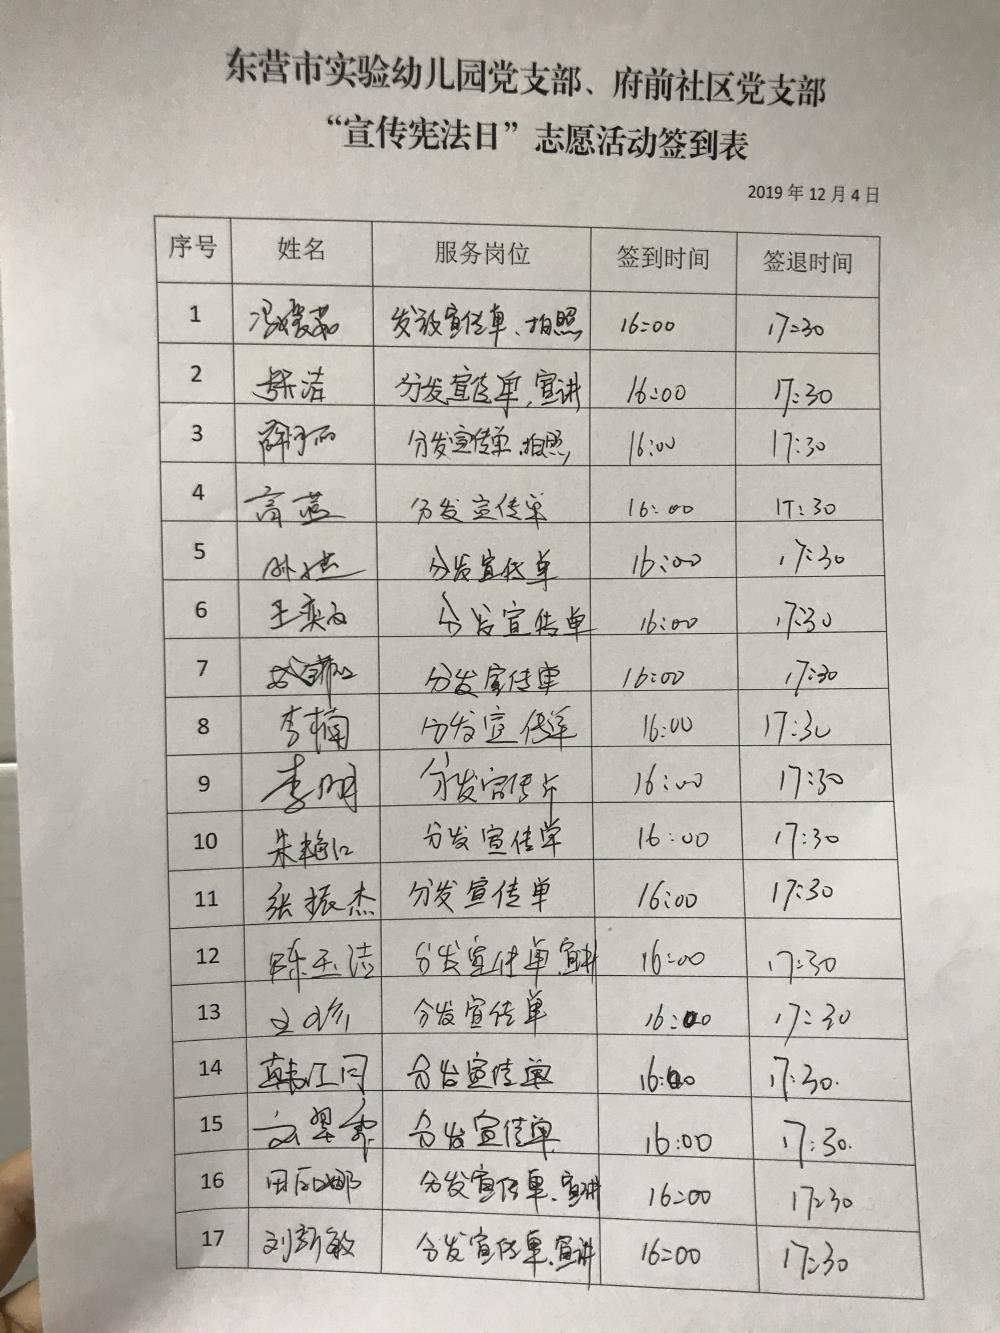 东营市实验幼儿园党支部、府前社区党支部
“宣传宪法日”志愿活动签到表
2019 年 12 月 4 日
序号 姓名 服务岗位 签到时间 签退时间
1 发放宣传单、拍照 16:00 17:30
2 张洁 分发宣传单、宣讲 16:00 17:30
3 分发宣传单、拍照 16:00 17:30
4 高燕 分发宣传单 16:00 17:30
5 分发宣传单 16:00 17:30
6 分发宣传单 16:00 17:30
7 分发宣传单 16:00 17:30
8 李楠 分发宣传单 16:00 17:30
9 李明 分发宣传 16:00 17:30
10 朱艳红 分发宣传单 16:00 17:30
11 张振杰 分发宣传单 16:00 17:30
12 陈玉洁 分发宣传单、宣讲 16:00 17:30
13 分发宣传单 16:00 17:30
14 分发宣传单 16:00 17:30.
15 分发宣传单 16:00 17:30.
16 分发宣传单、宣讲 16:00 17:30
17 刘新敏 分发宣传单、宣讲 16:00 17:30